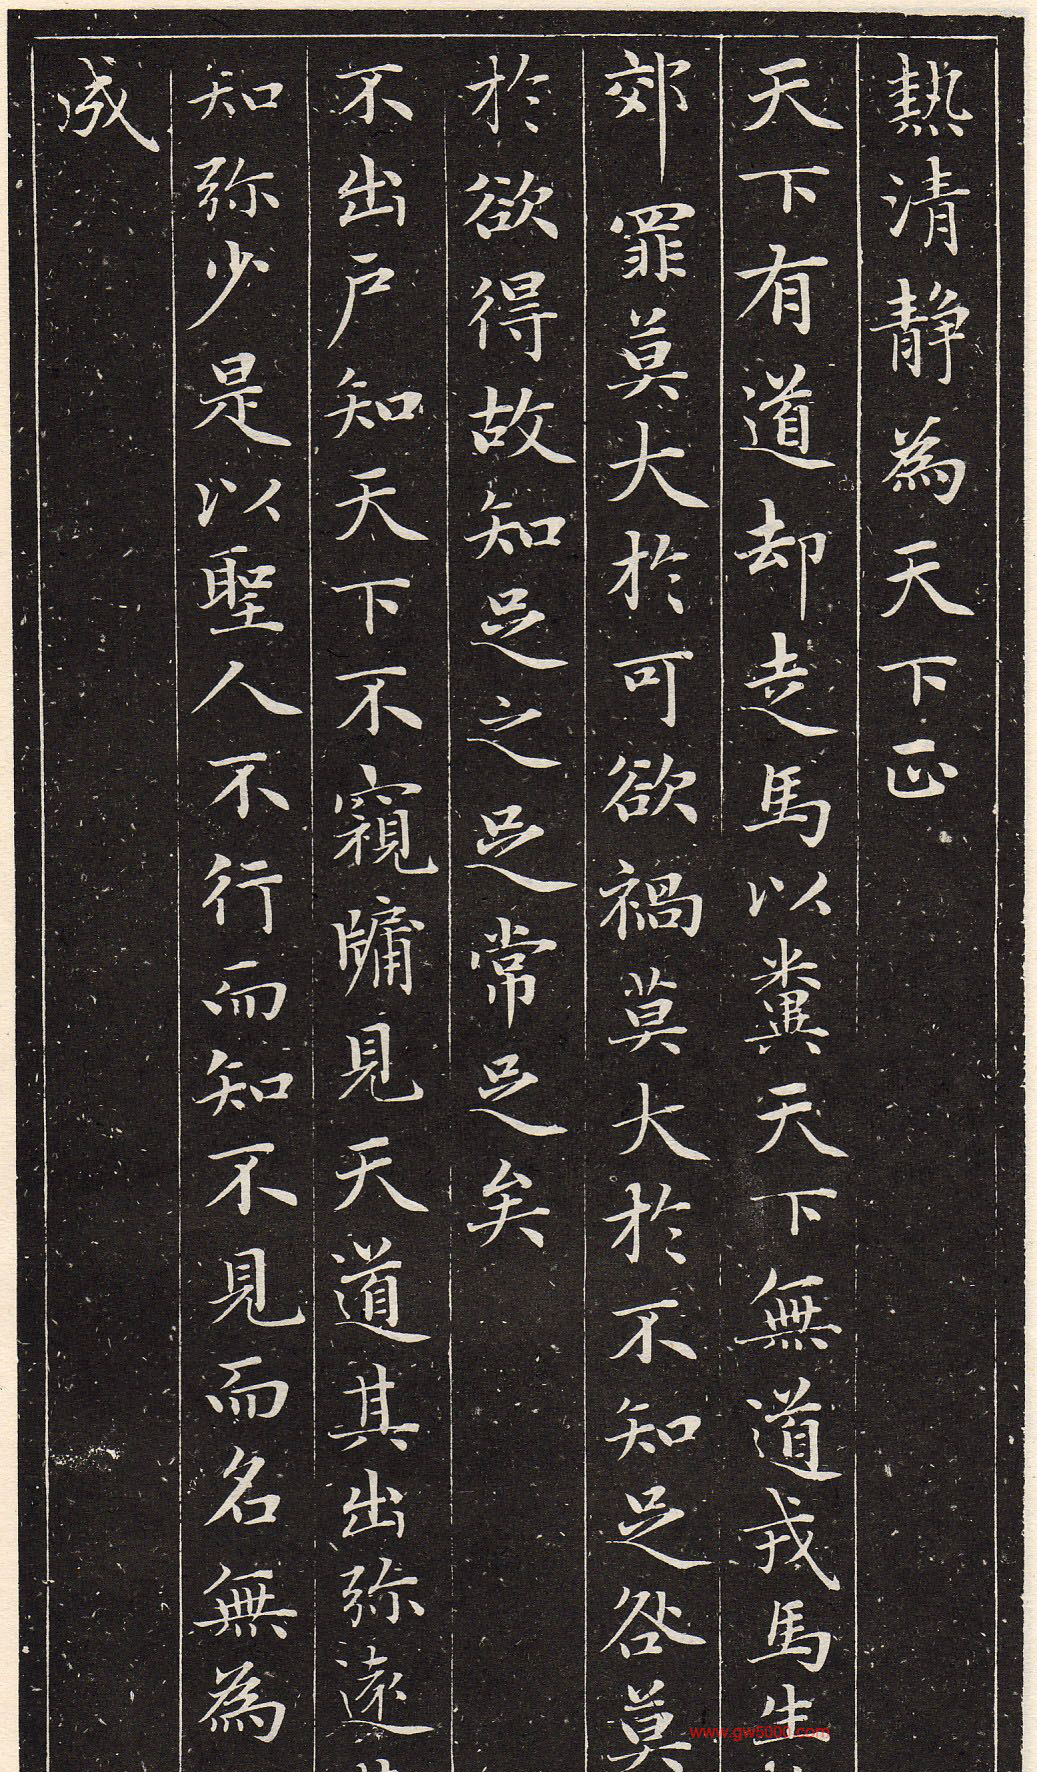 熱清靜為天下正
天下有道却走馬以糞天下無道戎馬生
郊罪莫大於可欲禍莫大於不知足咎莫
於欲得故知足之足常足矣
不出戶知天下不窺牖見天道其出弥遠
知弥少是以聖人不行而知不見而名無為
成
www.gw5000.com